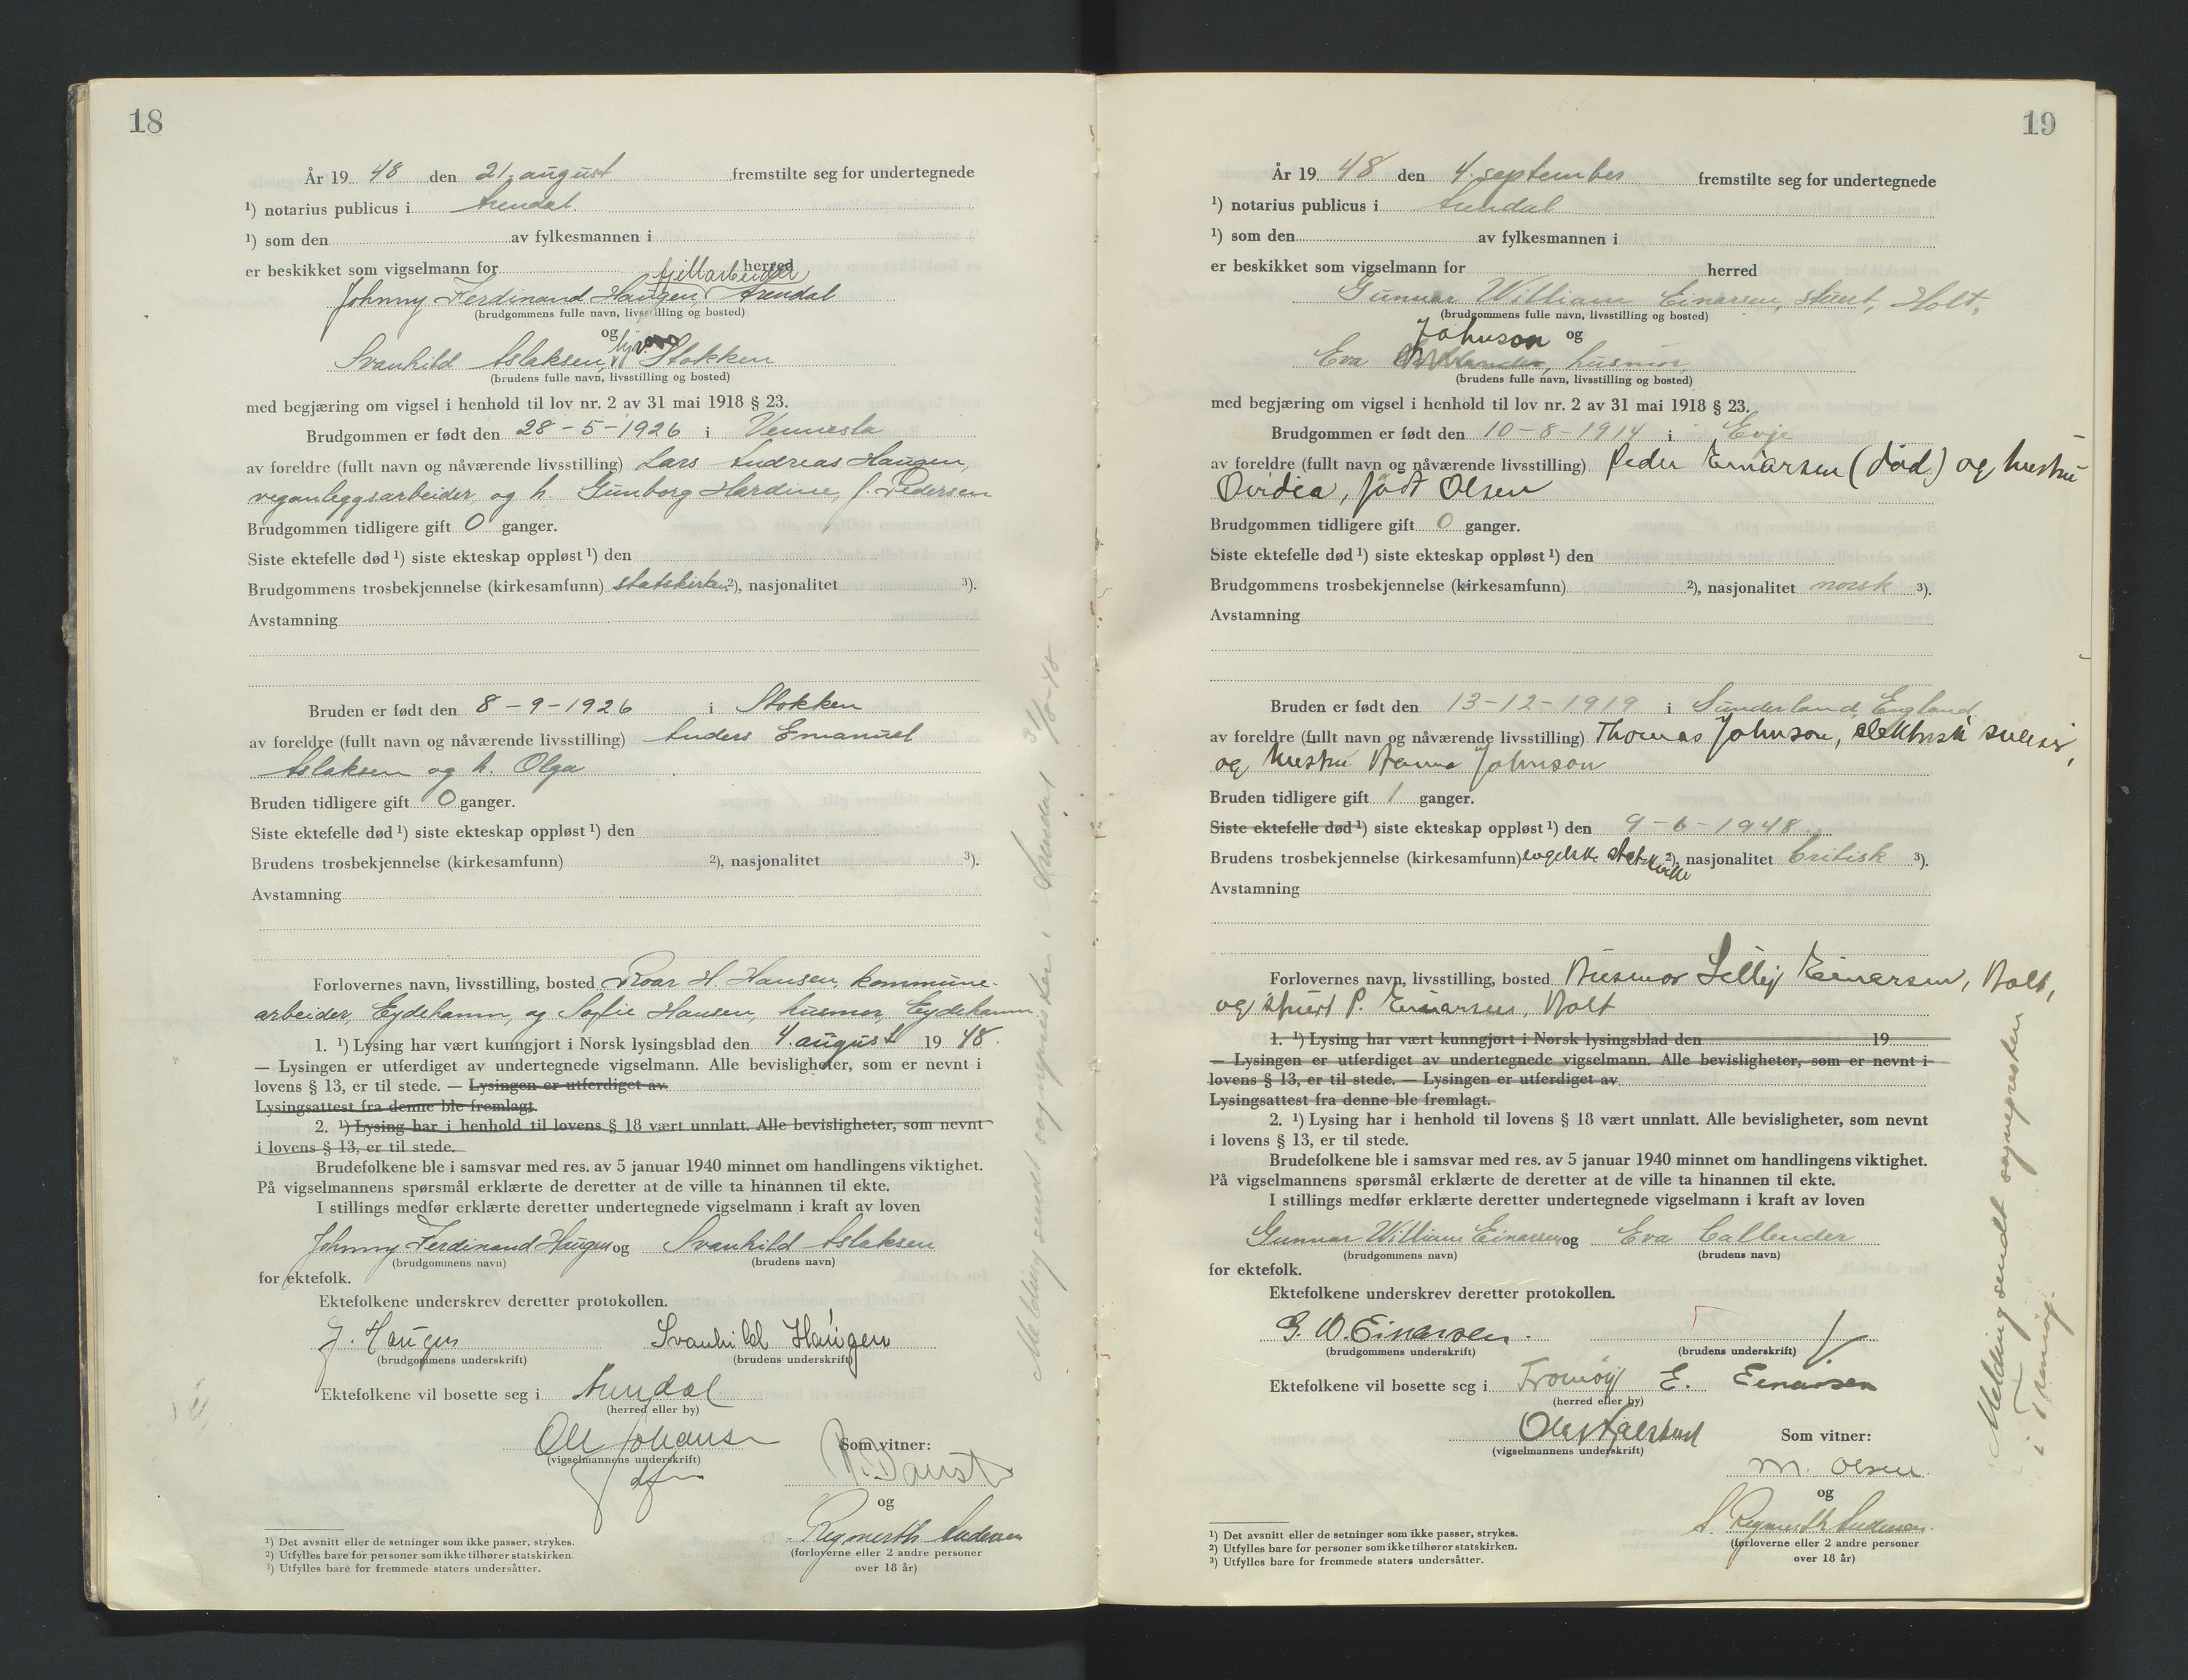 18
År 19 48 den 21. august fremstilte seg for undertegnede
¹) notarius publicus i Arendal.
¹) som den av fylkesmannen i
er beskikket som vigselmann for herred
fjellarbeider
Johnny Ferdinand Haugen, Arendal
(brudgommens fulle navn, livsstilling og bosted)
og
Svanhild Aslaksen, Stokken
(brudens fulle navn, livsstilling og bosted)
med begjæring om vigsel i henhold til lov nr. 2 av 31 mai 1918 § 23.
Brudgommen er født den 28-5-1926 i Vennesla
av foreldre (fullt navn og nåværende livsstilling) Lars Andreas Haugen,
veganleggsarbeider, og h. Gunborg Hardine, f. Pedersen
Brudgommen tidligere gift 0 ganger.
Siste ektefelle død ¹) siste ekteskap oppløst ¹) den
Brudgommens trosbekjennelse (kirkesamfunn) statskirken ²), nasjonalitet ³).
Avstamning
Bruden er født den 8-9-1926 i Stokken
av foreldre (fullt navn og nåværende livsstilling) Anders Emanuel
Aslaksen og h. Olga
Bruden tidligere gift 0 ganger.
Siste ektefelle død ¹) siste ekteskap oppløst ¹) den
Brudens trosbekjennelse (kirkesamfunn) ²), nasjonalitet ³).
Avstamning
Forlovernes navn, livsstilling, bosted Roar H. Hansen, kommune-
arbeider, Eydehamn, og Sofie Hansen, husmor, Eydehamn.
1. ¹) Lysing har vært kunngjort i Norsk lysingsblad den 4. august 19 48.
— Lysingen er utferdiget av undertegnede vigselmann. Alle bevisligheter, som er nevnt i
lovens § 13, er til stede. — Lysingen er utferdiget av
Lysingsattest fra denne ble fremlagt.
2. ¹) Lysing har i henhold til lovens § 18 vært unnlatt. Alle bevisligheter, som nevnt
i lovens § 13, er til stede.
Brudefolkene ble i samsvar med res. av 5 januar 1940 minnet om handlingens viktighet.
På vigselmannens spørsmål erklærte de deretter at de ville ta hinannen til ekte.
I stillings medfør erklærte deretter undertegnede vigselmann i kraft av loven
Johnny Ferdinand Haugen og Svanhild Aslaksen
(brudgommens navn) (brudens navn)
for ektefolk.
Ektefolkene underskrev deretter protokollen.
J. Haugen Svanhild Haugen
(brudgommens underskrift) (brudens underskrift)
Ektefolkene vil bosette seg i Arendal
(herred eller by)
Ole Johansen Som vitner:
(vigselmannens underskrift)
og
Regmerth Andersen
(forloverne eller 2 andre personer
over 18 år)
¹) Det avsnitt eller de setninger som ikke passer, strykes.
²) Utfylles bare for personer som ikke tilhører statskirken.
³) Utfylles bare for fremmede staters undersåtter.
Melding sendt sognepresten i Arendal 31/8-48
19
År 19 48 den 4. september fremstilte seg for undertegnede
¹) notarius publicus i Arendal
¹) som den av fylkesmannen i
er beskikket som vigselmann for herred
Gunnar William Einarsen, stuert, Holt,
(brudgommens fulle navn, livsstilling og bosted)
Johnson og
Eva husmor,
(brudens fulle navn, livsstilling og bosted)
med begjæring om vigsel i henhold til lov nr. 2 av 31 mai 1918 § 23.
Brudgommen er født den 10-8-1914 i Evje
av foreldre (fullt navn og nåværende livsstilling) Peder Einarsen (død) og hustru
Ovidia, født Olsen
Brudgommen tidligere gift 0 ganger.
Siste ektefelle død ¹) siste ekteskap oppløst ¹) den
Brudgommens trosbekjennelse (kirkesamfunn) ²), nasjonalitet norsk ³).
Avstamning
Bruden er født den 13-12-1919 i Sunderland, England
av foreldre (fullt navn og nåværende livsstilling) Thomas Johnson, elektrisk sveiser,
og hustru Johnson
Bruden tidligere gift 1 ganger.
Siste ektefelle død ¹) siste ekteskap oppløst ¹) den 9-6-1948
Brudens trosbekjennelse (kirkesamfunn) engelske statskirke ²), nasjonalitet britisk ³).
Avstamning
Forlovernes navn, livsstilling, bosted Husmor Lilly Einarsen, Holt,
og stuert P. Einarsen, Holt
1. ¹) Lysing har vært kunngjort i Norsk lysingsblad den 19
— Lysingen er utferdiget av undertegnede vigselmann. Alle bevisligheter, som er nevnt i
lovens § 13, er til stede. — Lysingen er utferdiget av
Lysingsattest fra denne ble fremlagt.
2. ¹) Lysing har i henhold til lovens § 18 vært unnlatt. Alle bevisligheter, som nevnt
i lovens § 13, er til stede.
Brudefolkene ble i samsvar med res. av 5 januar 1940 minnet om handlingens viktighet.
På vigselmannens spørsmål erklærte de deretter at de ville ta hinannen til ekte.
I stillings medfør erklærte deretter undertegnede vigselmann i kraft av loven
Gunnar William Einarsen og Eva Callender
(brudgommens navn) (brudens navn)
for ektefolk.
Ektefolkene underskrev deretter protokollen.
G. W. Einarsen.
(brudgommens underskrift) (brudens underskrift)
Ektefolkene vil bosette seg i Tromøy E. Einarsen
(herred eller by)
Som vitner:
(vigselmannens underskrift)
M. Olsen
og
S. Regmerth Andersen.
(forloverne eller 2 andre personer
over 18 år)
¹) Det avsnitt eller de setninger som ikke passer, strykes.
²) Utfylles bare for personer som ikke tilhører statskirken.
³) Utfylles bare for fremmede staters undersåtter.
Melding sendt sognepresten
i Tromøy.